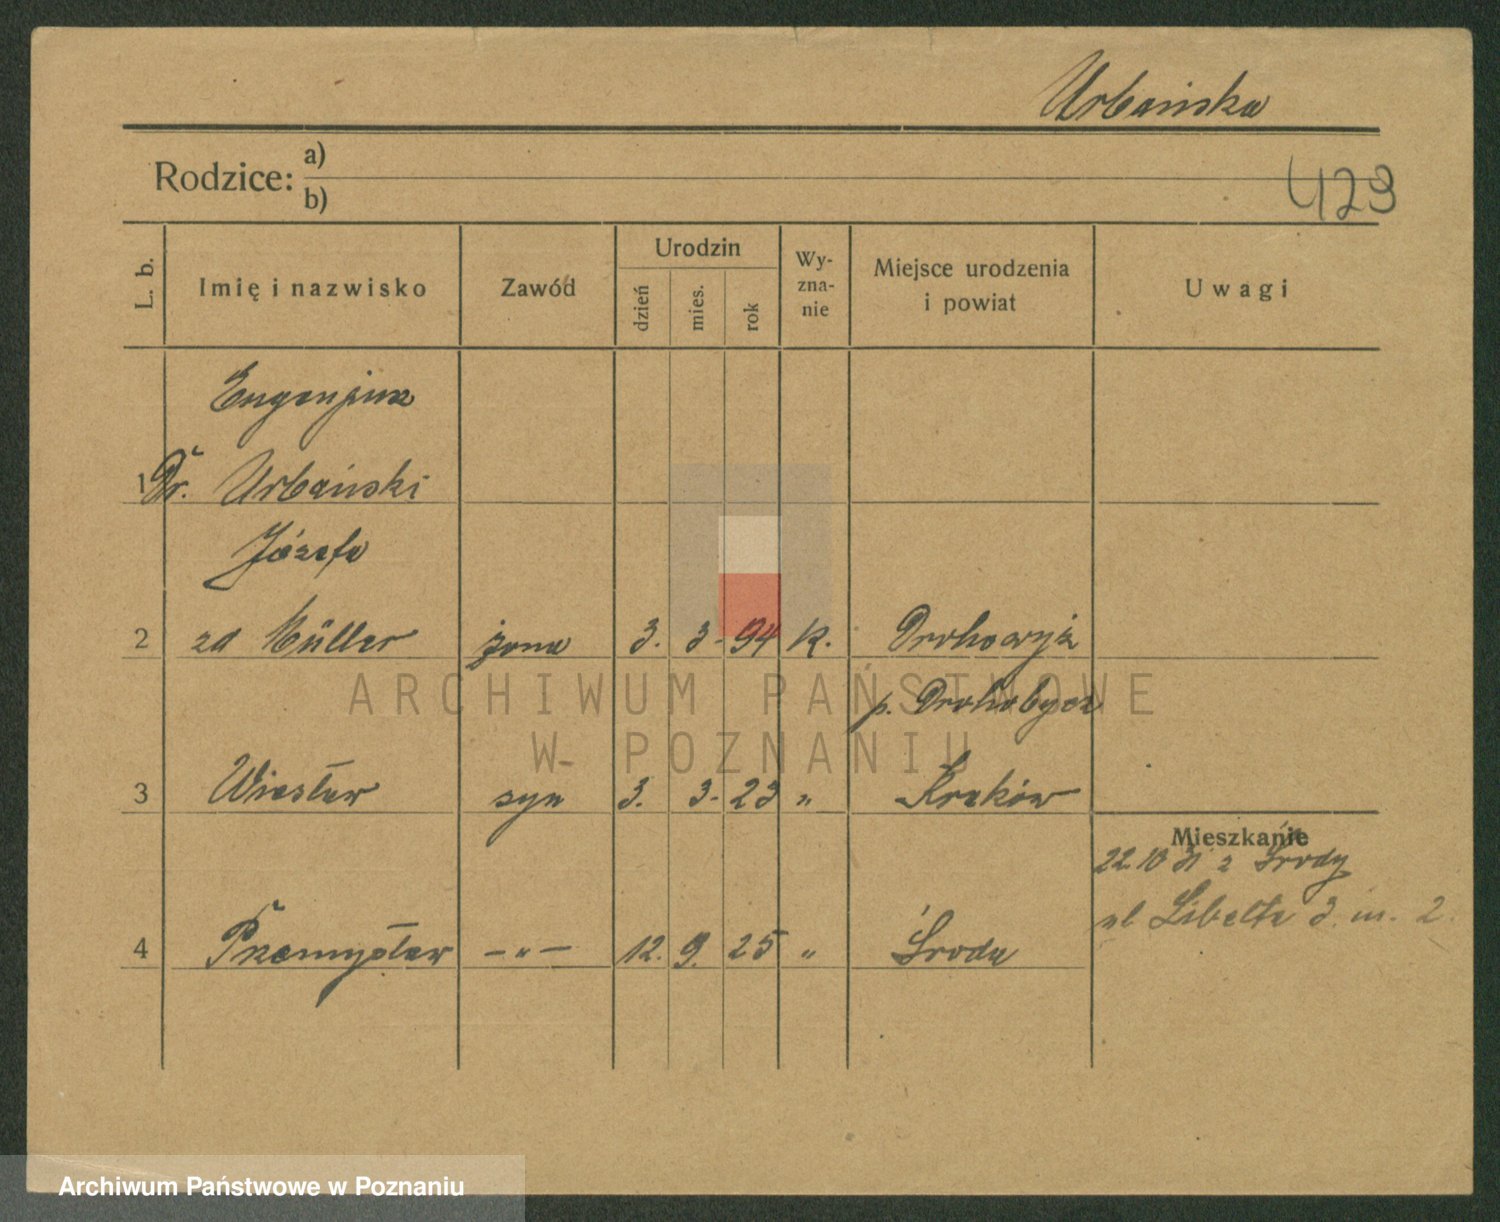 Urbańska
Rodzice: a)
b)
423
L. b. Imię i nazwisko Zawód Urodzin dzień mies. rok Wy-zna-nie Miejsce urodzenia i powiat Uwagi
Eugenjusz
1 Dr. Urbański
Józefa
2 zd Müller żona 3. 3- 94 k. Drohowyż
p. Drohobycz
3 Wiesław syn 3. 3- 23 " Kraków
Mieszkanie
22 10 31 z Środy
ul Libelta 3. m. 2.
4 Przemysław -"- 12. 9. 25 " Środa
ARCHIWUM PAŃSTWOWE
W POZNANIU
Archiwum Państwowe w Poznaniu